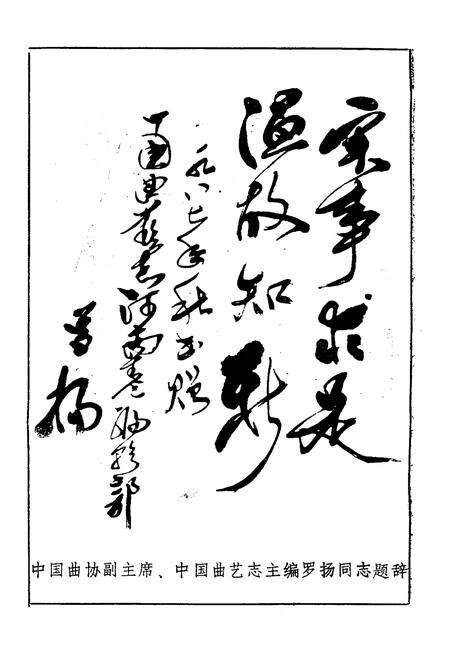 实事求是
温故知新
一九八七年秋书赠
中国曲艺志河南卷编辑部
罗扬
中国曲协副主席、中国曲艺志主编罗扬同志题辞